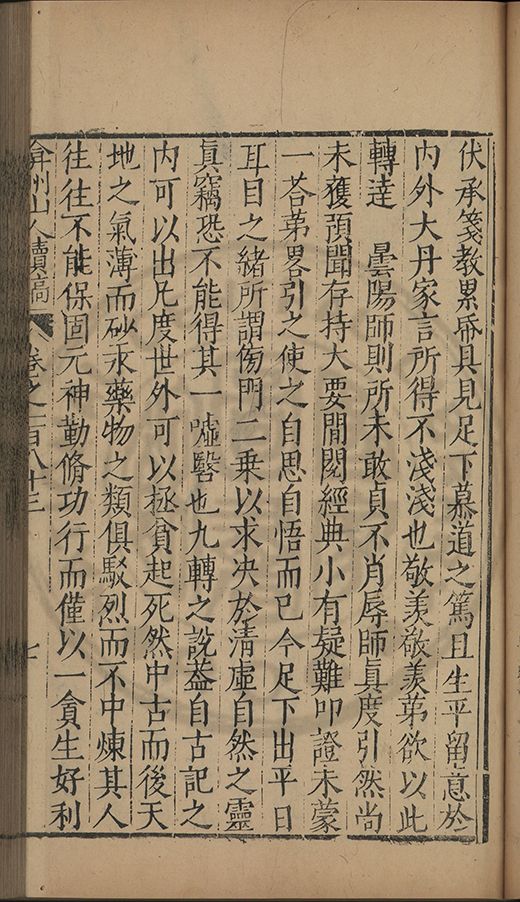 伏承箋教累帋具見足下慕道之篤且生平留意於
内外大丹家言所得不淺淺也敬羨敬羨苐欲以此
轉達　曇陽師則所未敢貞不肖辱師眞度引然尚
未獲預聞存持大要閒閱經典小有疑難叩證未蒙
一荅苐畧引之使之自思自悟而已今足下出平日
耳目之緒所謂傍門二乗以求决於清虛自然之靈
眞竊恐不能得其一噓毉也九轉之說葢自古記之
内可以出凡度世外可以拯貧起死然中古而後天
地之氣薄而砂汞藥物之類俱駁烈而不中煉其人
往往不能保固元神勤脩功行而僅以一貪生好利
弇州山人續稿　卷之一百八十三　七